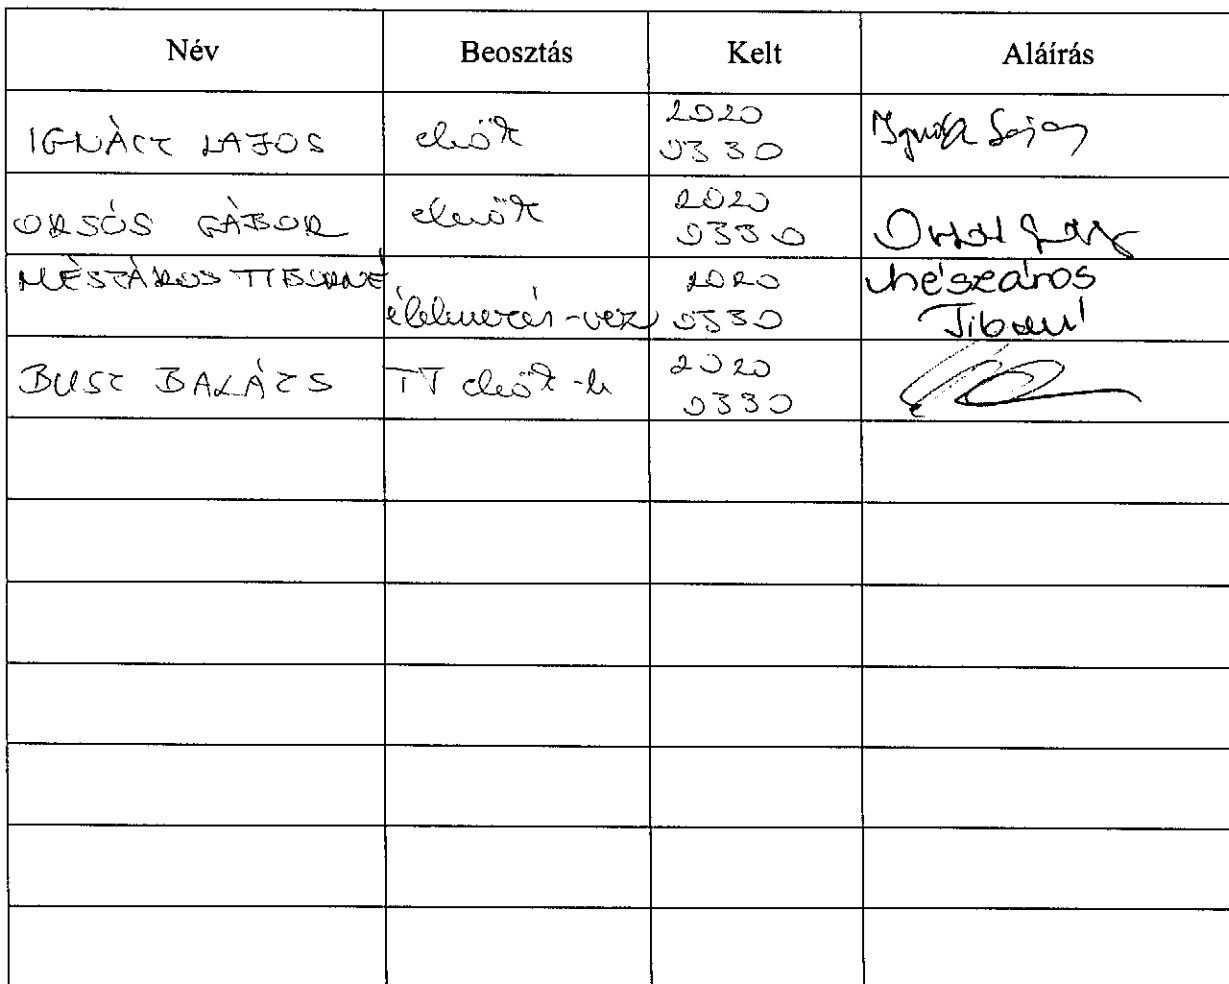 Név Beosztás Kelt Aláírás
IGNÁCZ LAJOS elnök 2020 0330 Ignácz Lajos
ORSÓS GÁBOR elnök 2020 0330
MÉSZÁROS TIBORNÉ élelmezés-vez 2020 0330 Mészáros Tiborné
BUSZ BALÁZS TT elnök-h 2020 0330